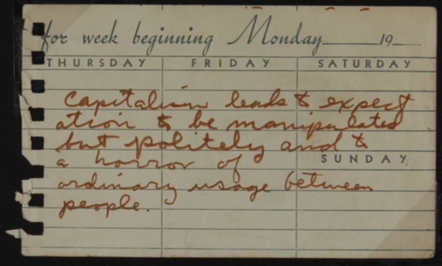 for week beginning Monday 19
THURSDAY FRIDAY SATURDAY
Capitalism leads to expect
ation to be manipulated
but politely and to
SUNDAY
a horror of
ordinary usage between
people.